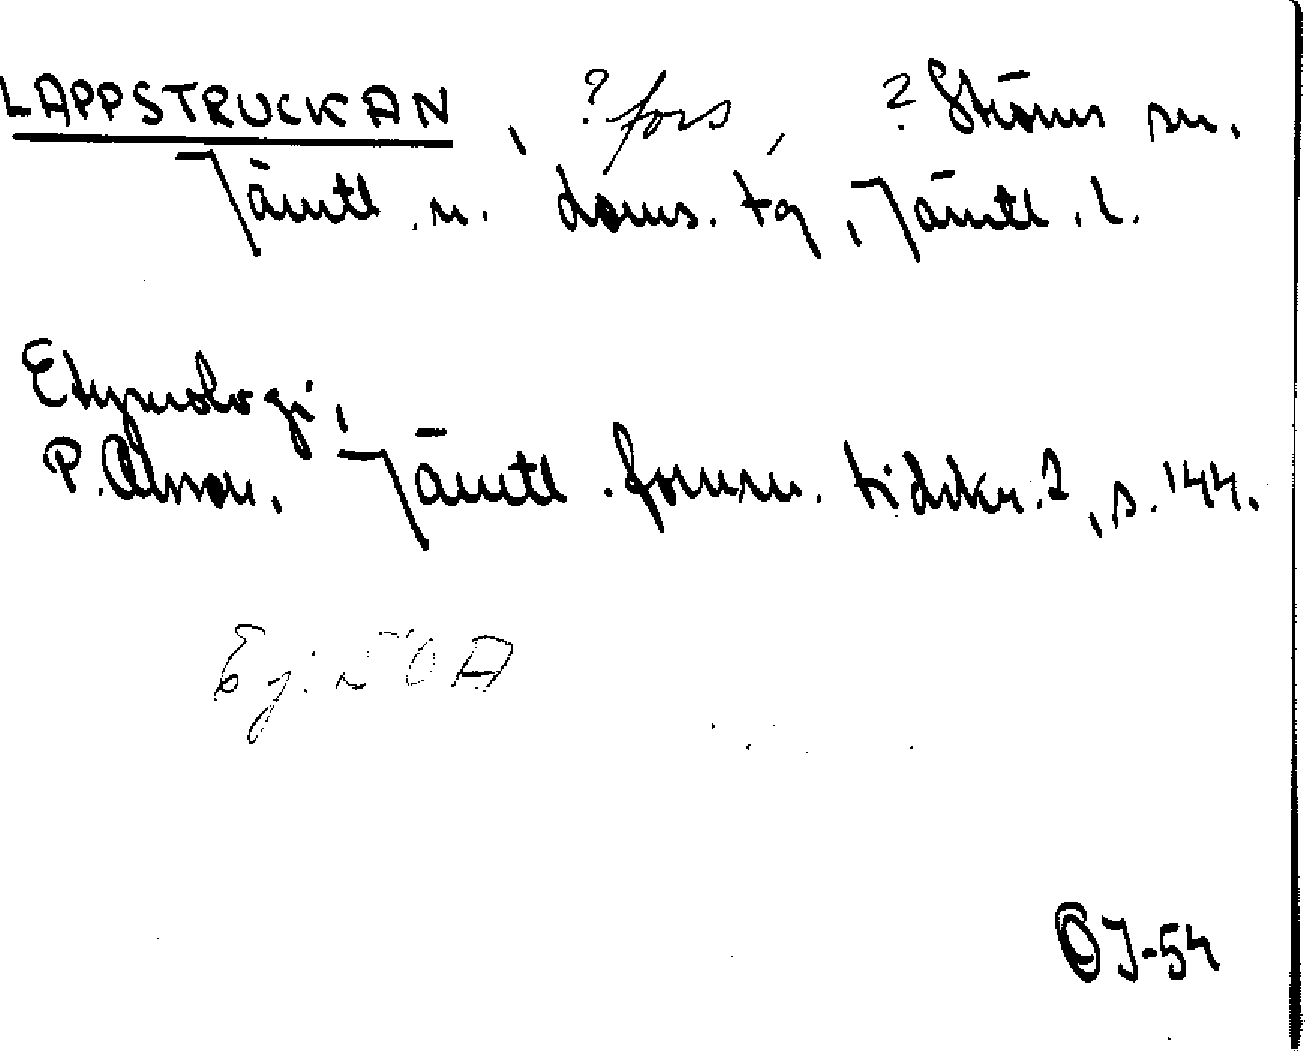 LAPPSTRUCKAN, ? fors, ? Ströms sn.
Jämtl. n. doms. tg, Jämtl. l.
Etymologi,
P. Olsson, Jämtl. fornm. tidskr. 2, s. 144.
Ej i OA
OJ-54